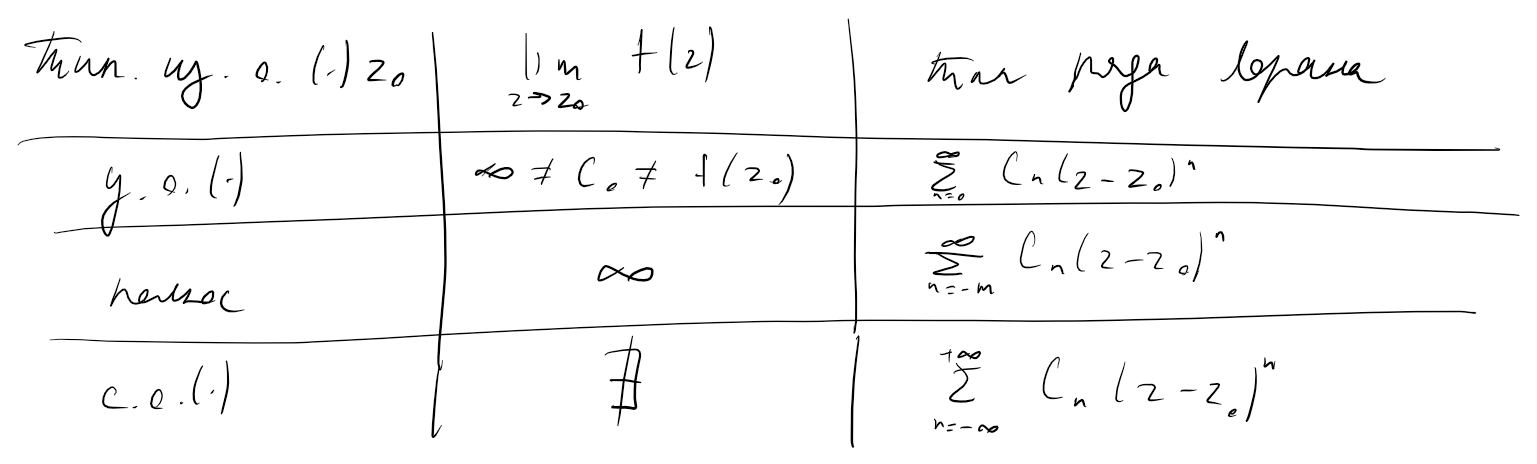 тип. из. о. (·) z₀ | lim_{z→z₀} f(z) | тип ряда Лорана
у. о. (·) | ∞ ≠ C₀ ≠ f(z₀) | ∑_{n=0}^{∞} Cₙ(z-z₀)ⁿ
полюс | ∞ | ∑_{n=-m}^{∞} Cₙ(z-z₀)ⁿ
с.о.(·) | ∄ | ∑_{n=-∞}^{+∞} Cₙ(z-z₀)ⁿ